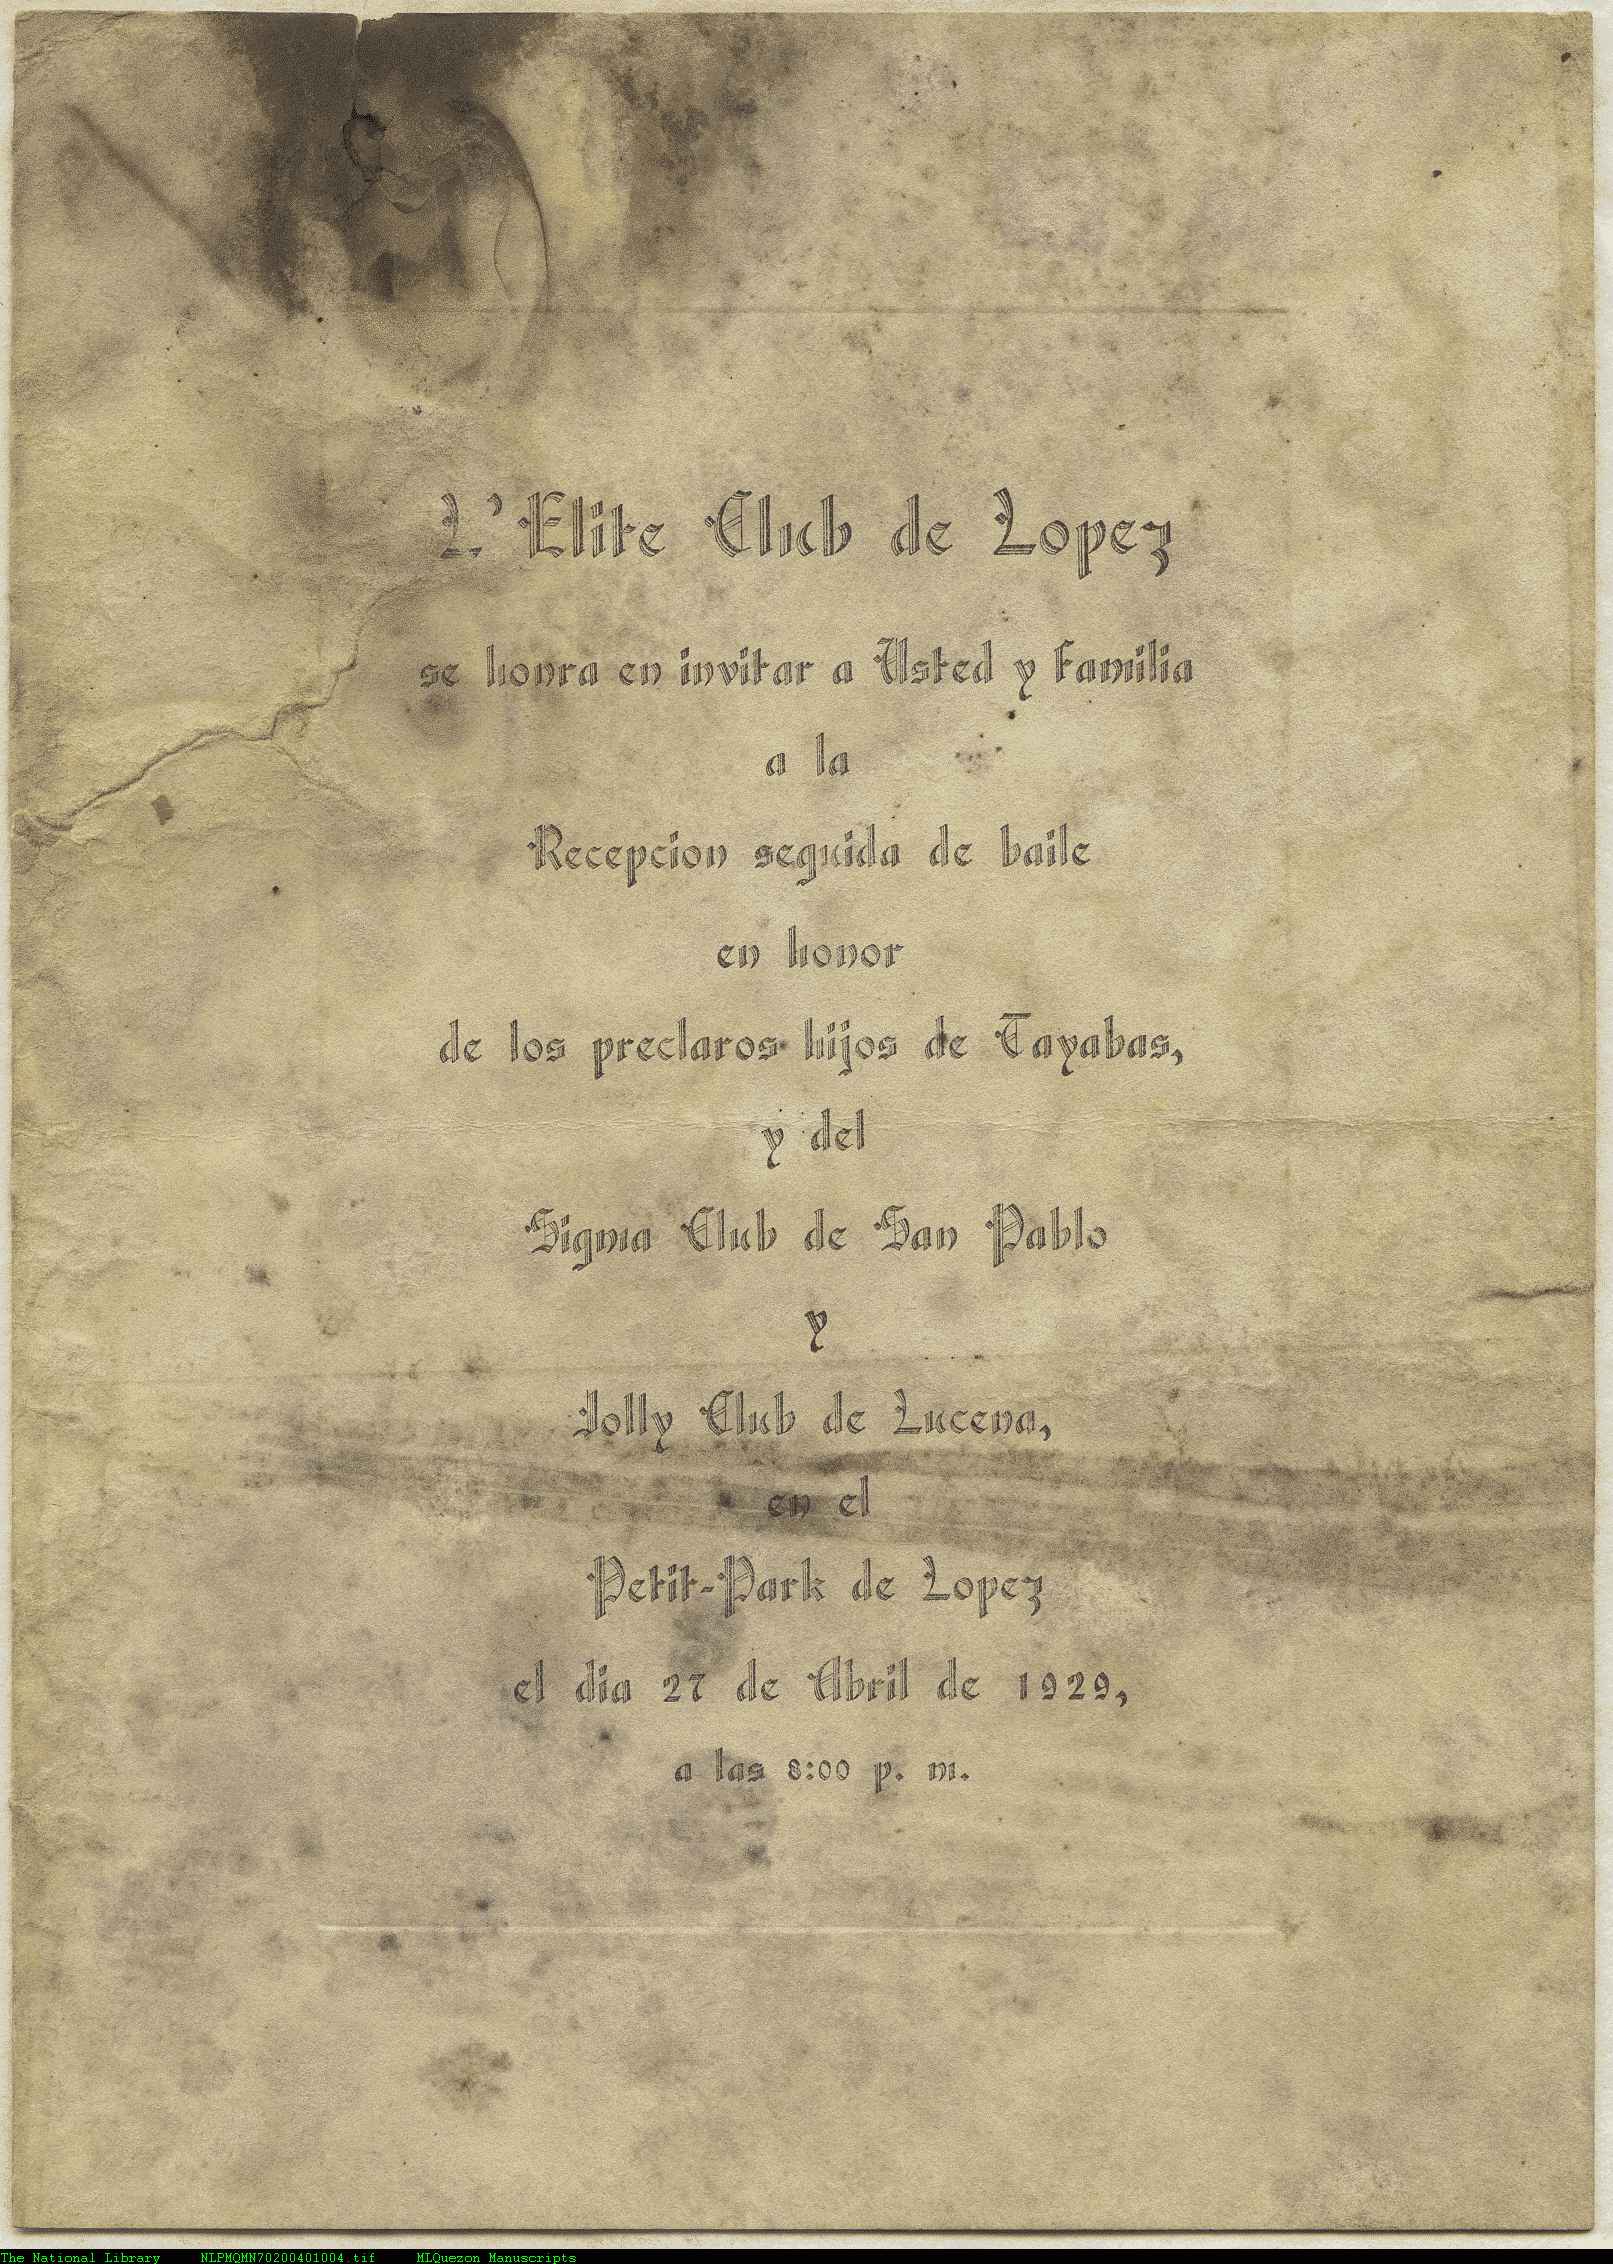 L'Elite Club de Lopez
se honra en invitar a Usted y familia
a la
Recepcion seguida de baile
en honor
de los preclaros hijos de Tayabas,
y del
Sigma Club de San Pablo
y
Jolly Club de Lucena,
en el
Petit-Park de Lopez
el dia 27 de Abril de 1929,
a las 8:00 p. m.
The National Library NLPMQMN70200401004.tif MLQuezon Manuscripts